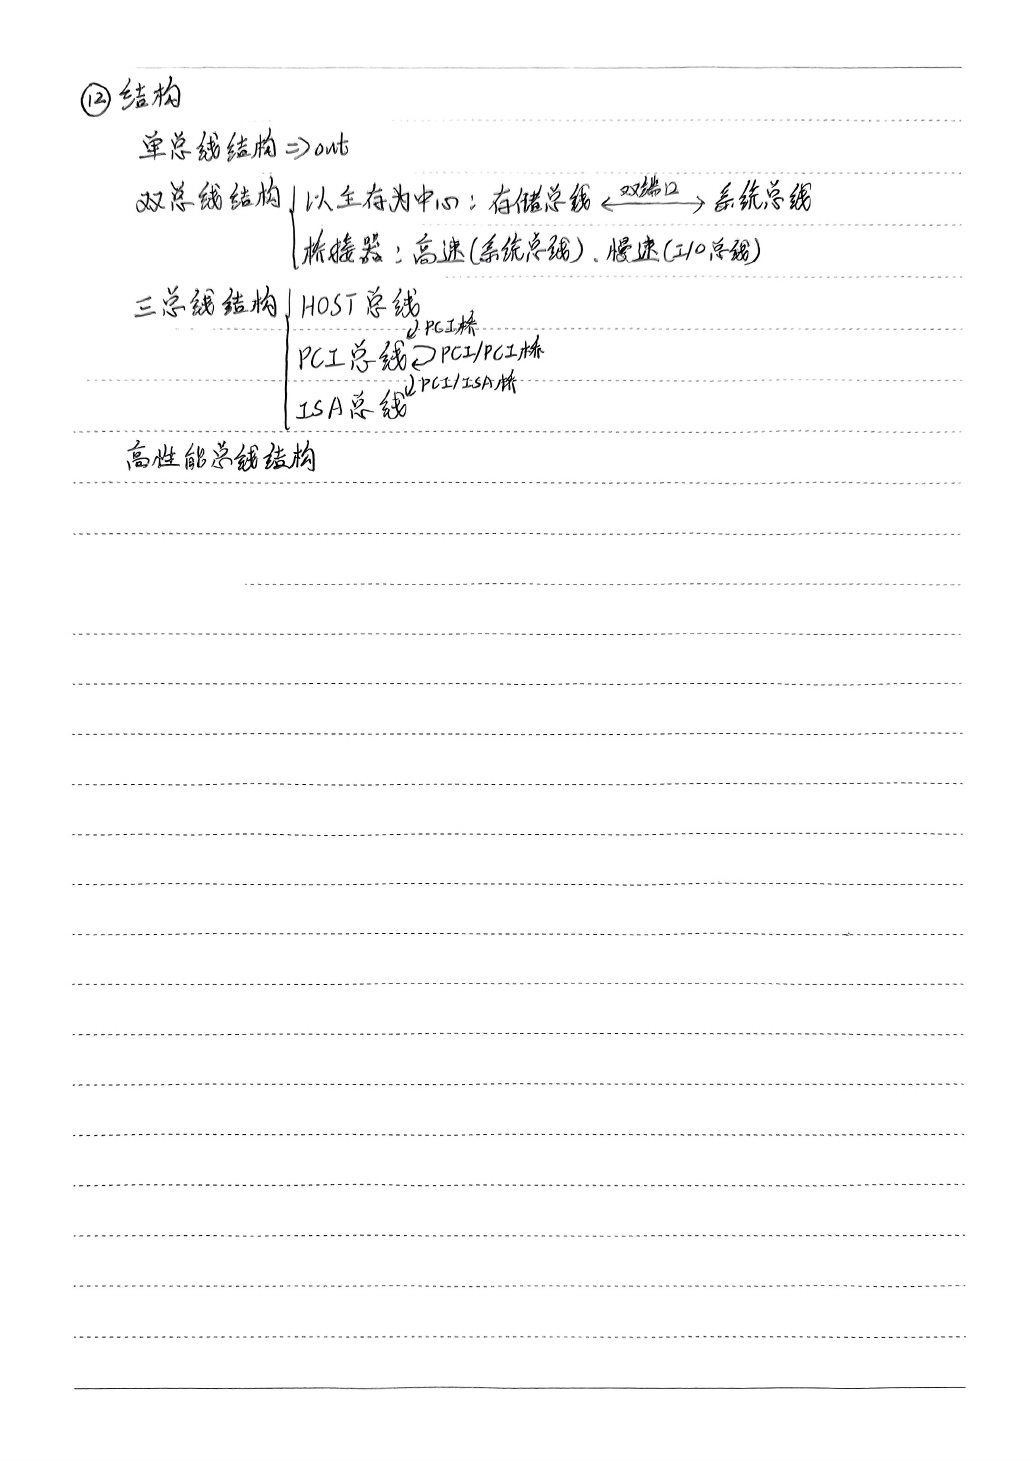 ⑫ 结构
单总线结构 => out
双总线结构 { 以主存为中心：存储总线 <—双端口—> 系统总线
桥接器：高速(系统总线)、慢速(I/O总线)
三总线结构 { HOST总线
↓ PCI桥
PCI总线 PCI/PCI桥
↓ PCI/ISA桥
ISA总线
高性能总线结构